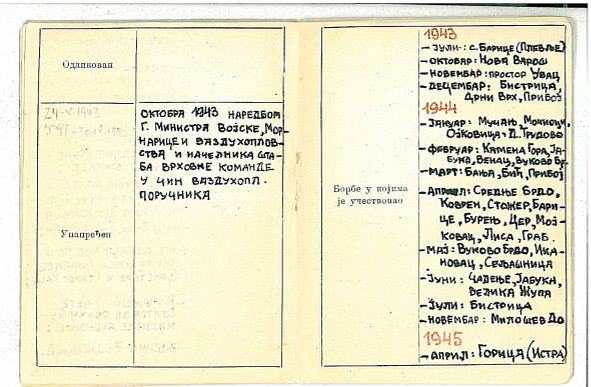 Одликован
Унапређен
24-X-1943
ОКТОБРА 1943 НАРЕДБОМ
Г. МИНИСТРА ВОЈСКЕ, МОР-
НАРИЦЕ И ВАЗДУХОПЛОВ-
СТВА И НАЧЕЛНИКА ШТА-
БА ВРХОВНЕ КОМАНДЕ
У ЧИН ВАЗДУХОПЛ.
ПОРУЧНИКА
Борбе у којима
је учествовао
1943
- ЈУЛИ: с. БАРИЦЕ (ПЛЕВЉЕ)
- ОКТОБАР: НОВА ВАРОШ
- НОВЕМБАР: ПРОСТОР УВАЦ
- ДЕЦЕМБАР: БИСТРИЦА,
ЦРНИ ВРХ, ПРИБОЈ
1944
- ЈАНУАР: МУЧАЊ,
ОЈКОВИЦА, Д. ТРУДОВО
- ФЕБРУАР: КАМЕНА ГОРА, ЈА-
БУКА, ВЕНАЦ, ВУКОВО БР.
- МАРТ: БАЊА, БИЋ, ПРИБОЈ
- АПРИЛ: СРЕДЊЕ БРДО,
КОВРЕН, СТОЖЕР, БАРИ-
ЦЕ, БУРЕЊ, ЦЕР, МОЈ-
КОВАЦ, ЛИСА, ГРАБ.
- МАЈ: ВУКОВО БРДО, ИКА-
НОВАЦ, СЕЉАШНИЦА
- ЈУНИ: ЧАДЕЊЕ, ЈАБУКА,
ВЕЛИКА ЖУПА
- ЈУЛИ: БИСТРИЦА
- НОВЕМБАР: МИЛОШЕВ ДО
1945
- АПРИЛ: ГОРИЦА (ИСТРА)